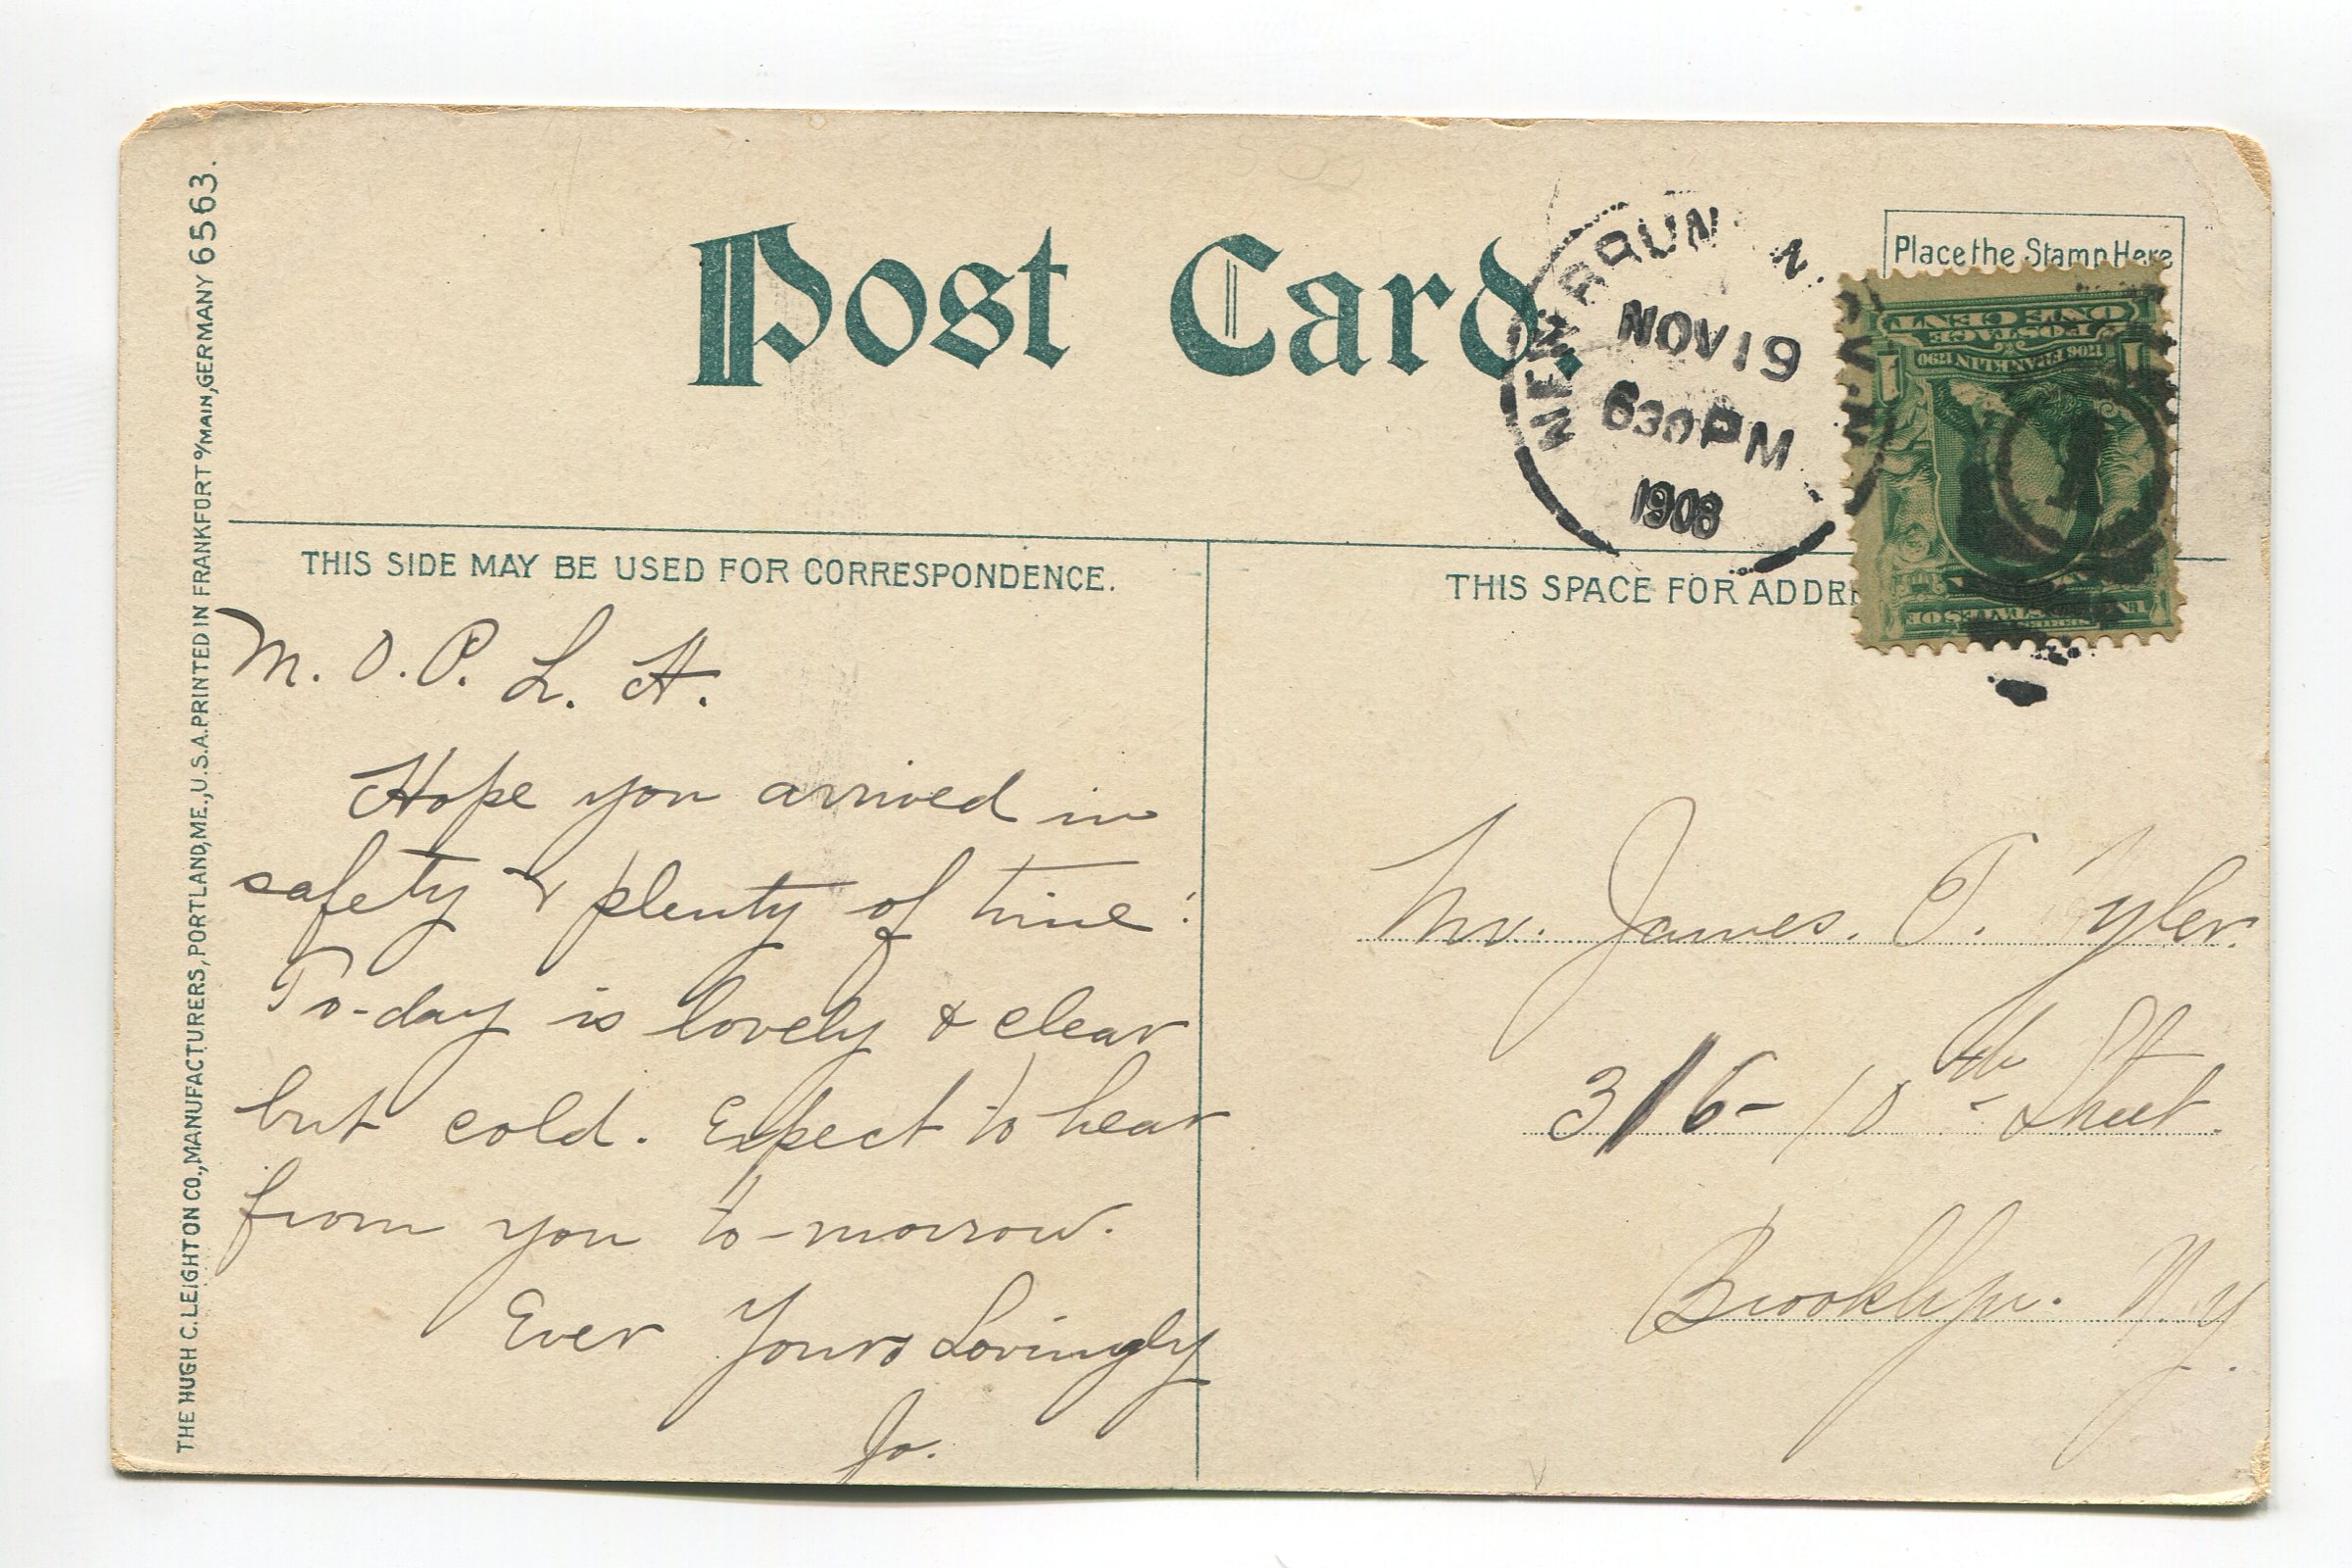 Post Card.
Place the Stamp Here
NOV 19
630 PM
1908
THE HUGH C. LEIGHTON CO., MANUFACTURERS, PORTLAND, ME., U.S.A. PRINTED IN FRANKFURT o/MAIN, GERMANY 6563.
THIS SIDE MAY BE USED FOR CORRESPONDENCE.
THIS SPACE FOR ADDRE
M. O. P. L. H.
Hope you arrived in
safety & plenty of time!
To-day is lovely & clear
but cold. Expect to hear
from you to-morrow.
Ever Yours Lovingly
Jo.
Mr. James. T. Tyler.
316 - 10th Street.
Brooklyn. N.Y.
ONE CENT
POSTAGE
1706 FRANKLIN 1790
1 1